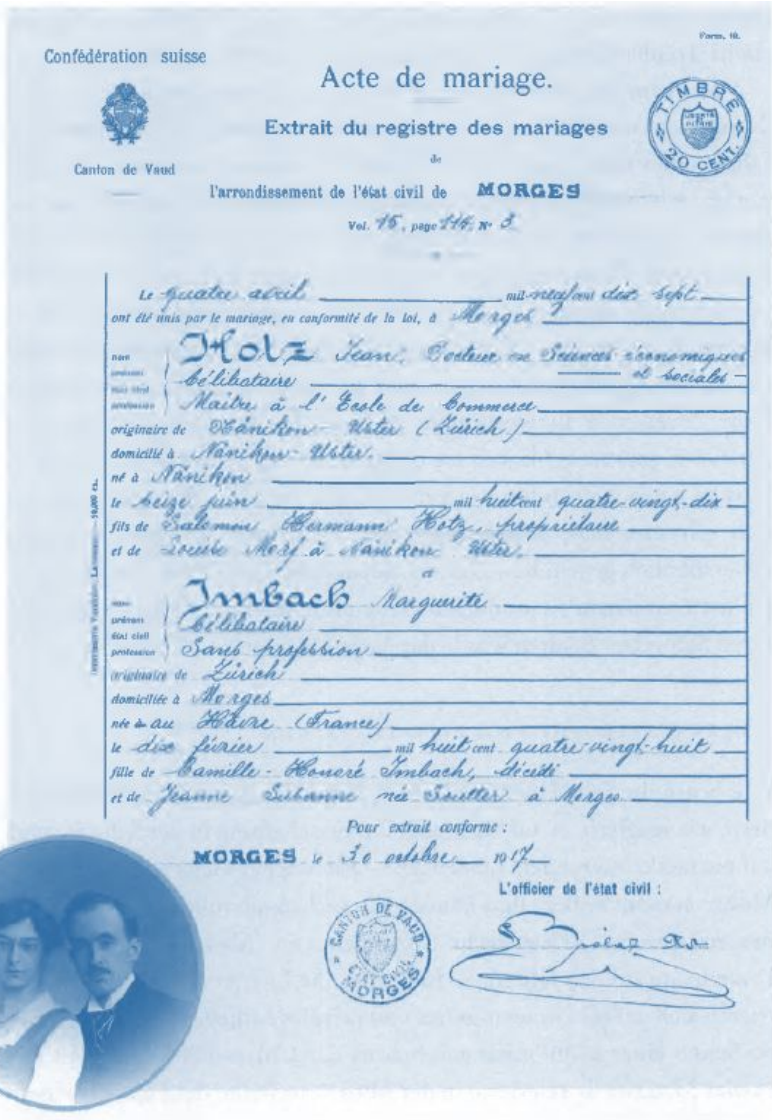 Form. 10.
Confédération suisse
Canton de Vaud
TIMBRE
LIBERTÉ
PATRIE
20 CENT.
Acte de mariage.
Extrait du registre des mariages
de
l'arrondissement de l'état civil de MORGES
Vol. 15, page 114, N° 3
Le quatre avril mil neuf cent dix sept
ont été unis par le mariage, en conformité de la loi, à Morges
nom Hotz Jean, Docteur en Sciences économiques
prénom et sociales
état civil Célibataire
profession Maître à l'Ecole de Commerce
originaire de Nänikon-Uster (Zürich)
domicilié à Nänikon-Uster
né à Nänikon
le seize juin mil huit cent quatre-vingt-dix
fils de Salomon Hermann Hotz, propriétaire
et de Louise Morf à Nänikon Uster,
et
nom Imbach Marguerite
prénom
état civil Célibataire
profession Sans profession
originaire de Zürich
domiciliée à Morges
née à au Hâvre (France)
le dix février mil huit cent quatre-vingt-huit
fille de Camille-Honoré Imbach, décédé
et de Jeanne Susanne née Soutter à Morges
Pour extrait conforme :
MORGES le 30 octobre 1917
L'officier de l'état civil :
CANTON DE VAUD
ETAT CIVIL
MORGES